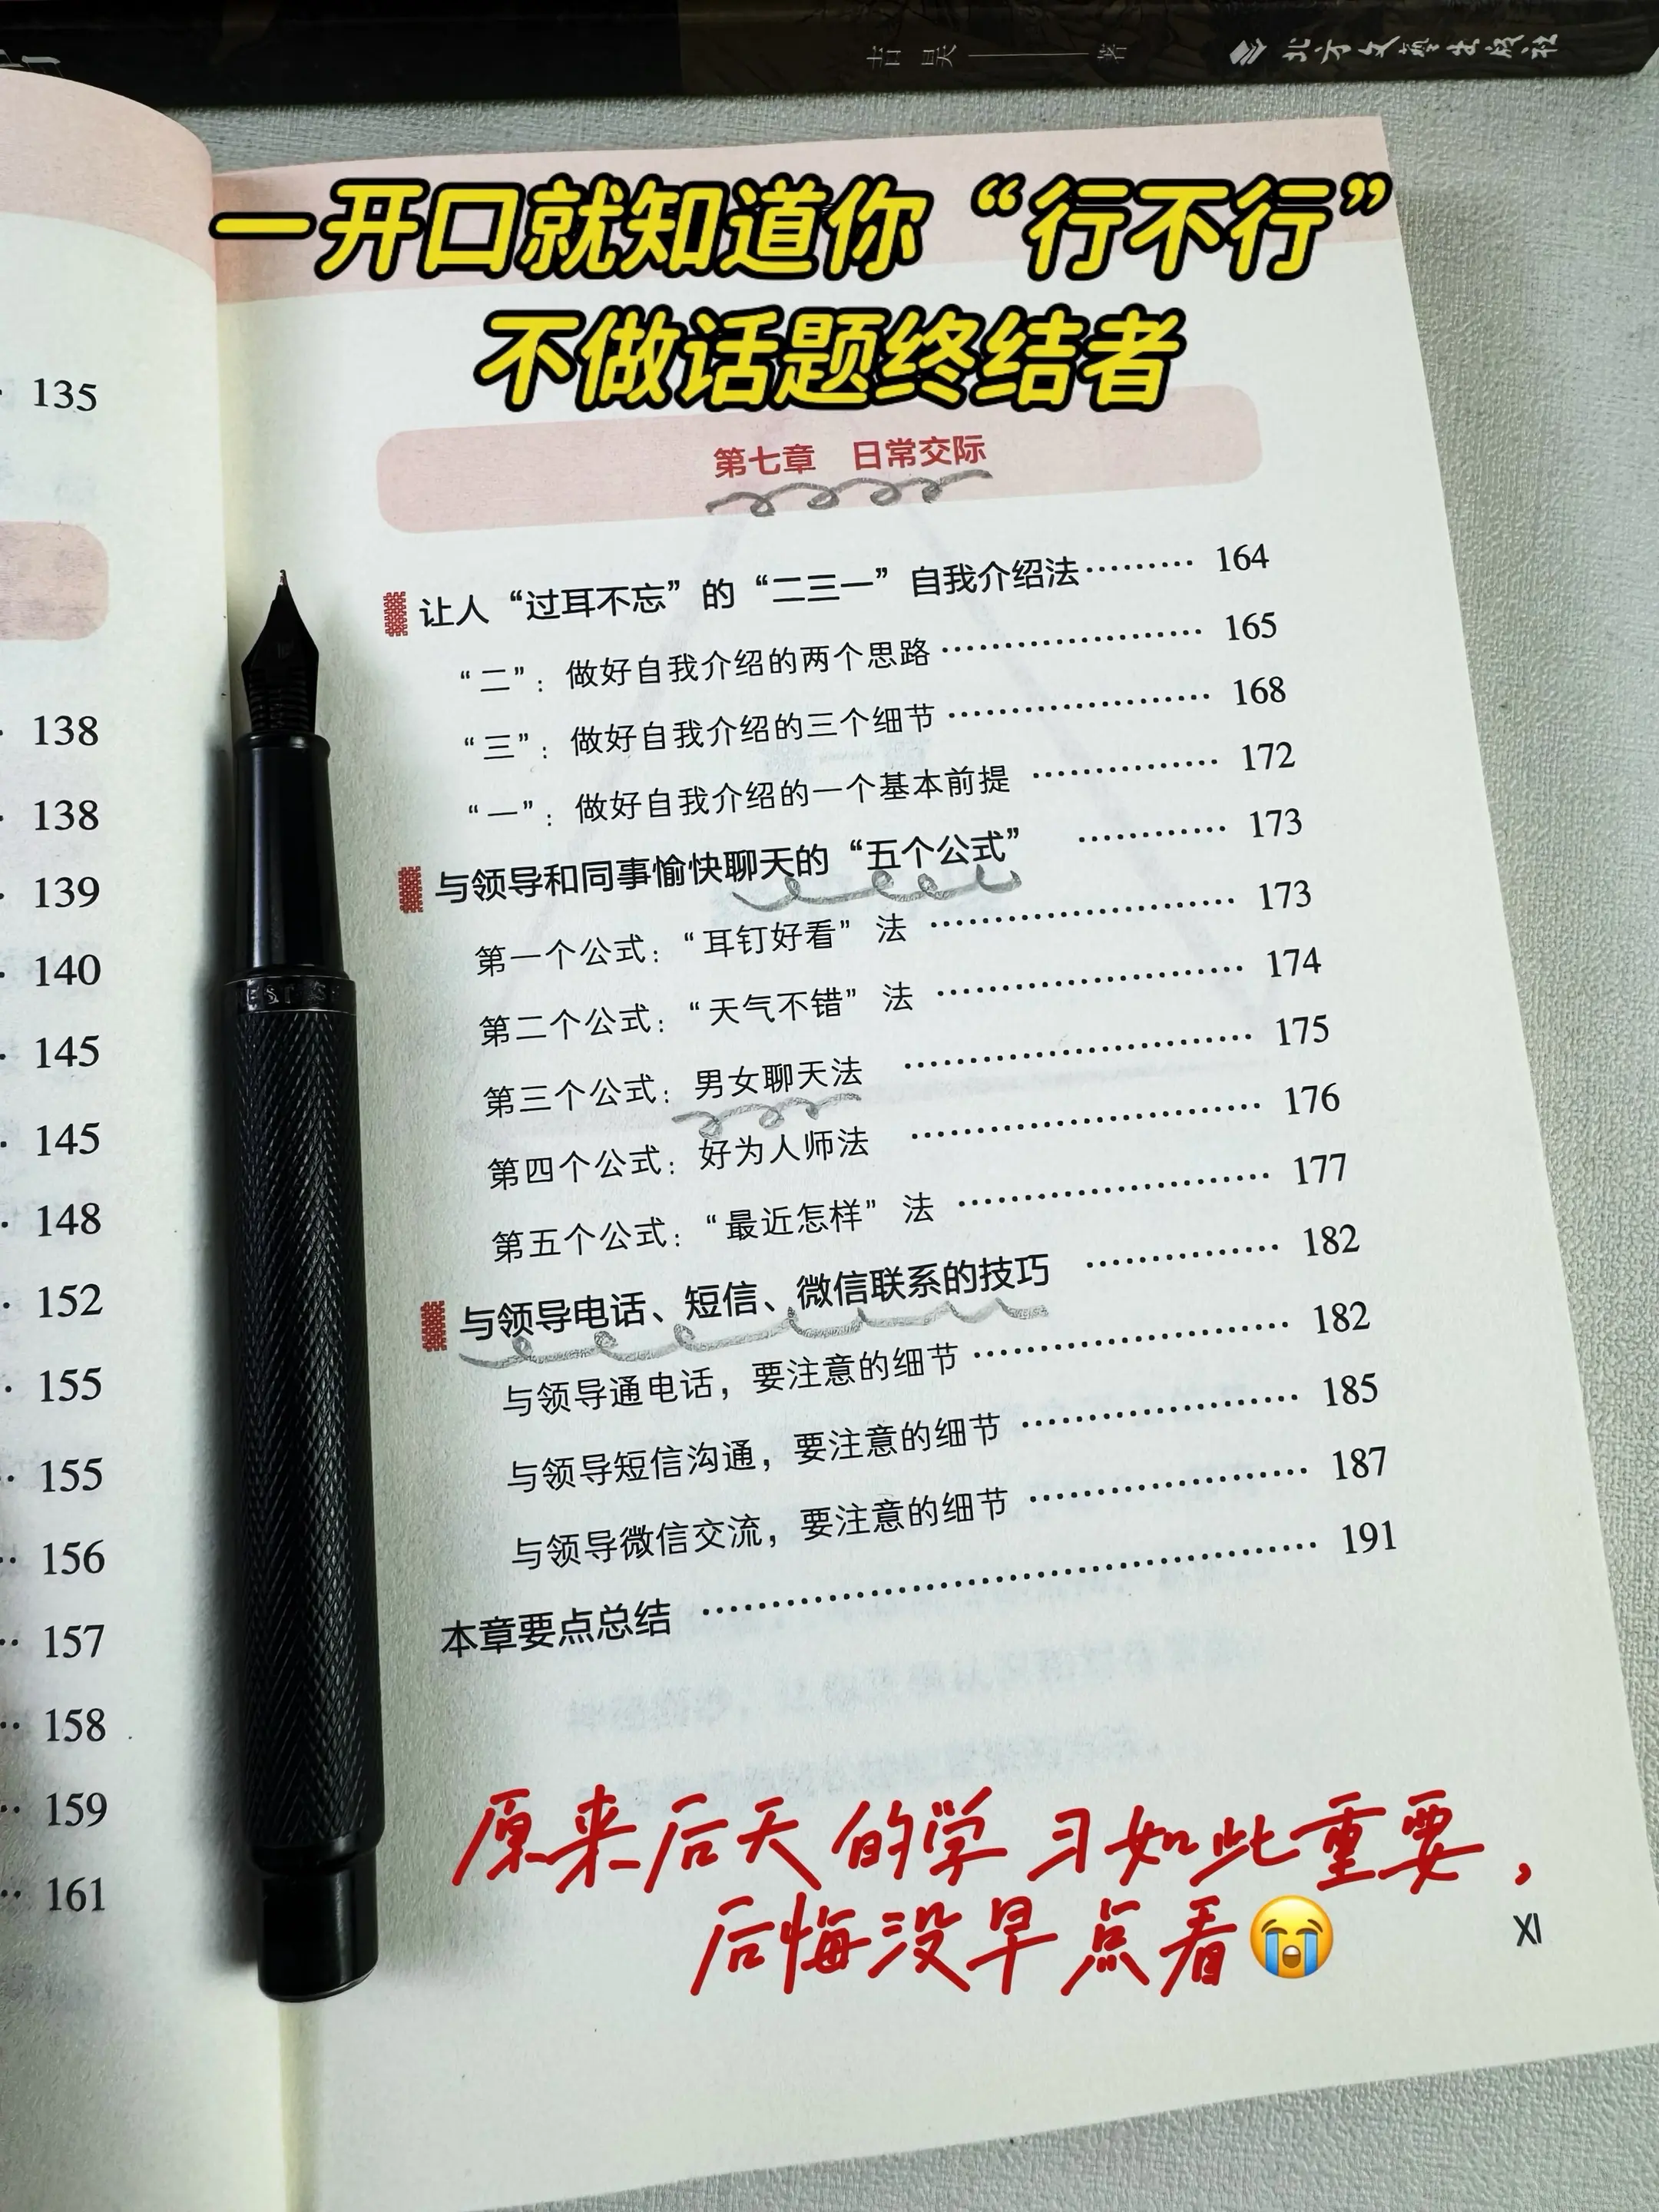 吉昊 著 北方文艺出版社
一开口就知道你“行不行”
不做话题终结者
135
138
138
139
140
145
145
148
152
155
155
156
157
158
159
161
第七章 日常交际
让人“过耳不忘”的“二三一”自我介绍法 ········· 164
“二”：做好自我介绍的两个思路 ········· 165
“三”：做好自我介绍的三个细节 ········· 168
“一”：做好自我介绍的一个基本前提 ········· 172
与领导和同事愉快聊天的“五个公式” ········· 173
第一个公式：“耳钉好看”法 ········· 173
第二个公式：“天气不错”法 ········· 174
第三个公式：男女聊天法 ········· 175
第四个公式：好为人师法 ········· 176
第五个公式：“最近怎样”法 ········· 177
与领导电话、短信、微信联系的技巧 ········· 182
与领导通电话，要注意的细节 ········· 182
与领导短信沟通，要注意的细节 ········· 185
与领导微信交流，要注意的细节 ········· 187
本章要点总结 ········· 191
原来后天的学习如此重要，
后悔没早点看😭
XI